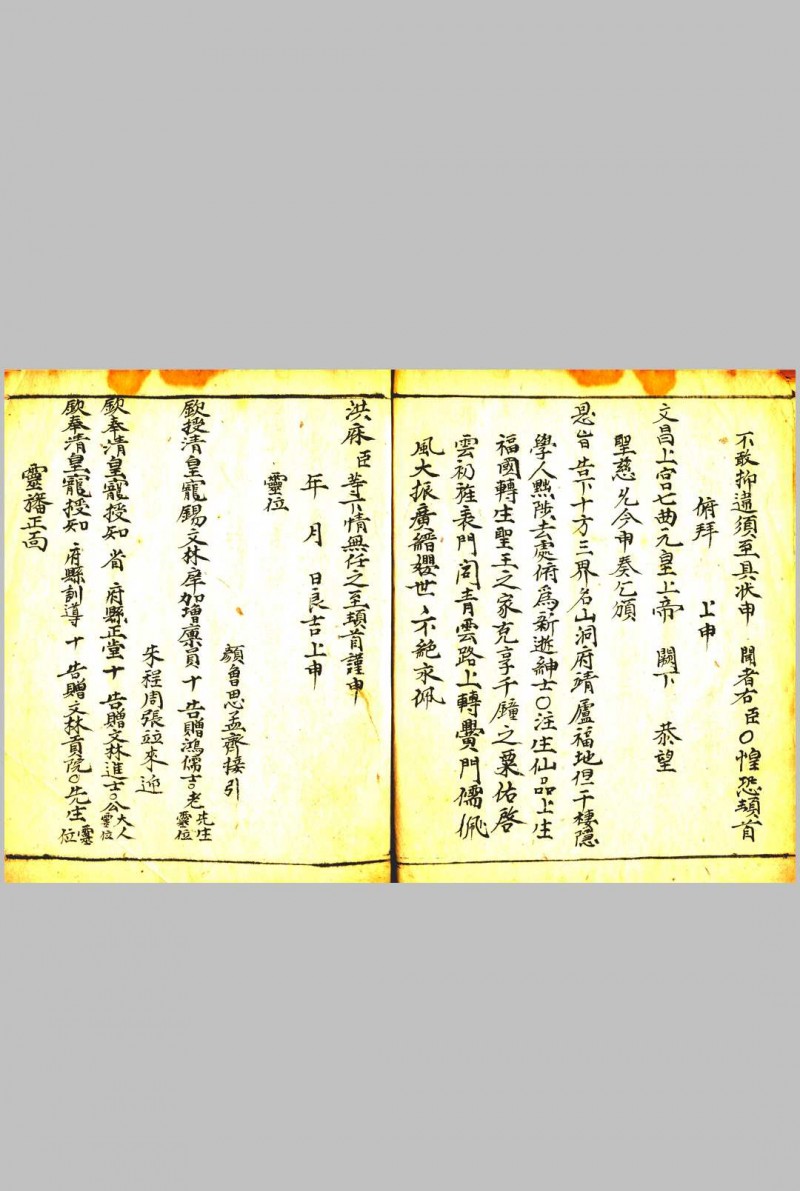 不敢抑違須至具狀申　聞者右臣〇惶恐頓首
俯拜　　上申
文昌上宮七曲元皇上帝　闕下　恭望
聖慈允今申奏乞頒
恩旨告下十方三界名山洞府靖廬福地但干棲隱
學人黜陟去處俯為新逝紳士〇注生仙品上生
福國轉生聖王之家克享千鐘之粟佑啓
雲礽旌表門閭青雲路上轉黌門儒佩
風大振廣縉纓世〻不絕永佩
洪庥臣等下情無任之至頓首謹申
年　月　日良吉上申
靈位
顏曾思孟齊接引
欽授清皇寵錫文林庠加增廩貢十　告贈鴻儒吉〇老先生靈位
朱程周張竝來迎
欽奉清皇寵授知省　府縣正堂十　告贈文林進士〇公大人靈位
欽奉清皇寵授知　府縣訓導十　告贈文林貢院〇先生靈位
靈旛正面